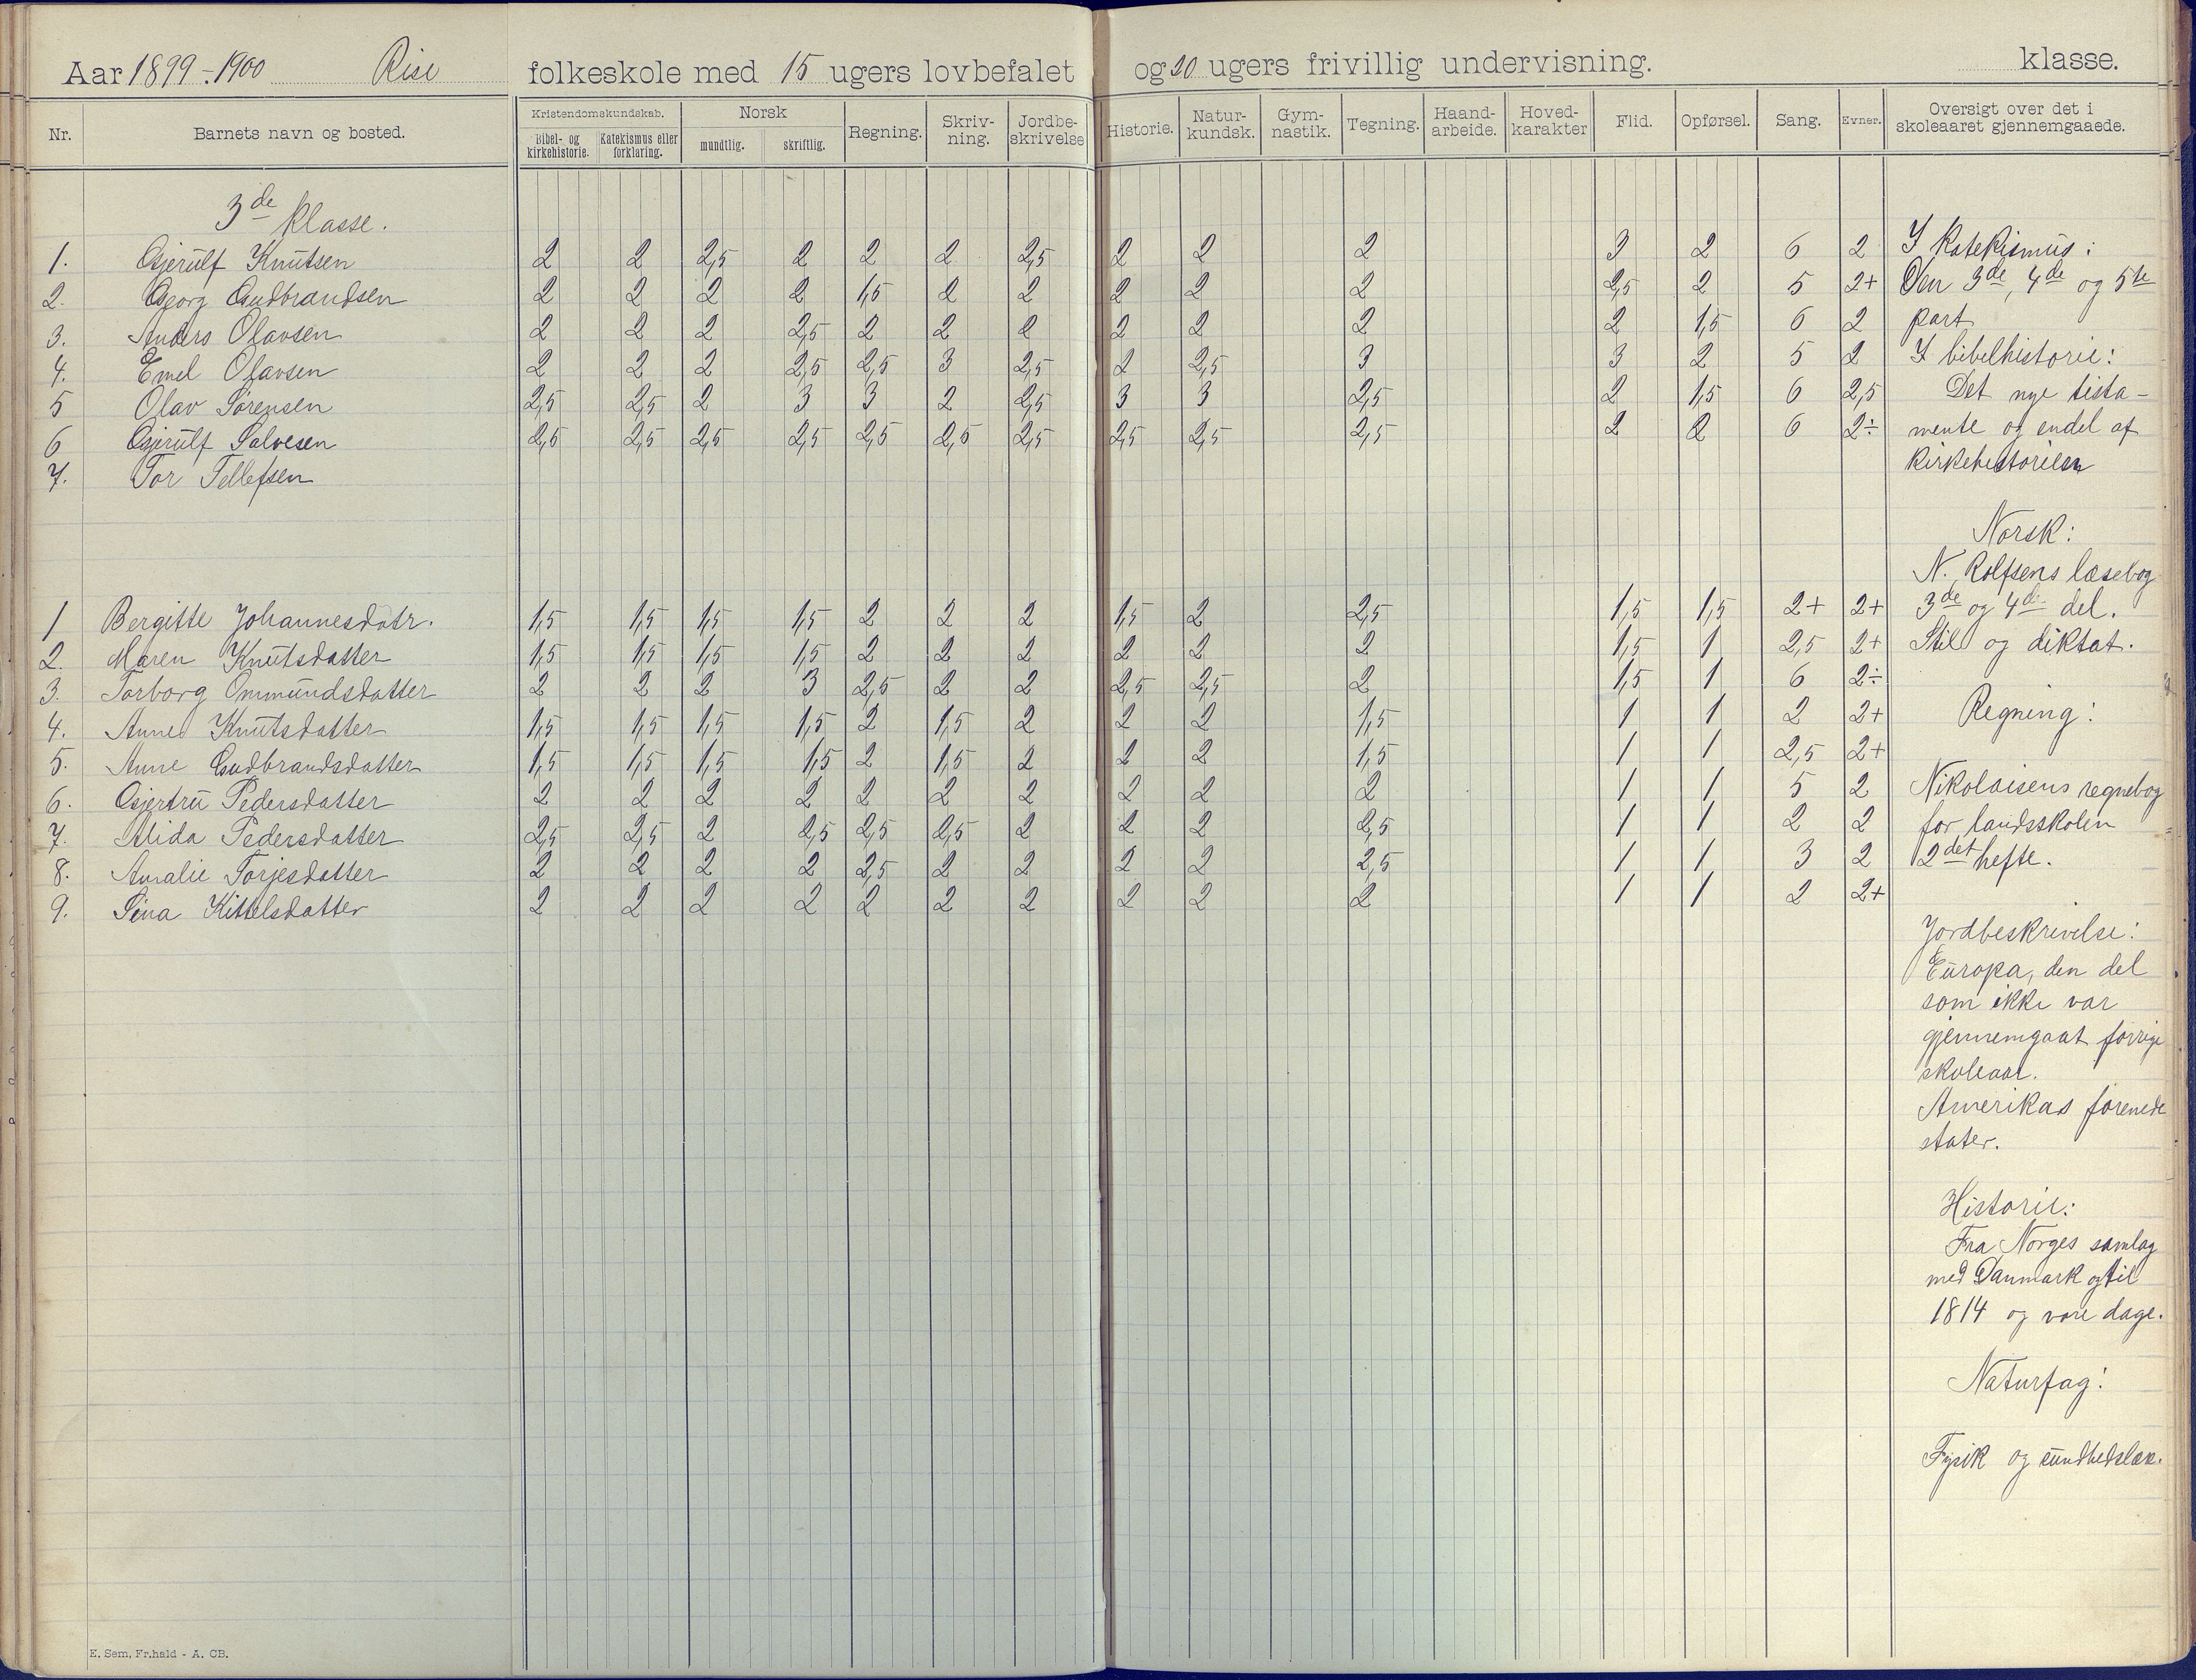 Aar 1899-1900 Rise folkeskole med 15 ugers lovbefalet og 20 ugers frivillig undervisning. klasse.
Nr. Barnets navn og bosted. Kristendomskundskab. Bibel- og kirkehistorie. Katekismus eller forklaring. Norsk mundtlig. skriftlig. Regning. Skriv-ning. Jordbe-skrivelse Historie. Natur-kundsk. Gym-nastik. Tegning. Haand-arbeide. Hoved-karakter Flid. Opførsel. Sang. Evner. Oversigt over det i skoleaaret gjennemgaaede.
3de klasse.
1. Gjerulf Knutsen 2 2 2,5 2 2 2 2,5 2 2 2 3 2 6 2
2. Georg Gudbrandsen 2 2 2 2 1,5 2 2 2 2 2 2,5 2 5 2+
3. Anders Olavsen 2 2 2 2,5 2 2 2 2 2 2 2 1,5 6 2
4. Emel Olavsen 2 2 2 2,5 2,5 3 2,5 2 2,5 3 3 2 5 2
5 Olav Sørensen 2,5 2,5 2 3 3 2 2,5 3 3 2,5 2 1,5 6 2,5
6 Gjerulf Salvesen 2,5 2,5 2,5 2,5 2,5 2,5 2,5 2,5 2,5 2,5 2 2 6 2÷
7. Tor Tellefsen
1 Bergitte Johannesdatr. 1,5 1,5 1,5 1,5 2 2 2 1,5 2 2,5 1,5 1,5 2+ 2+
2. Maren Knutsdatter 1,5 1,5 1,5 1,5 2 2 2 2 2 2 1,5 1 2,5 2+
3. Torborg Ommundsdatter 2 2 2 3 2,5 2 2 2,5 2,5 2 1,5 1 6 2÷
4. Anne Knutsdatter 1,5 1,5 1,5 1,5 2 1,5 2 2 2 1,5 1 1 2 2+
5. Anne Gudbrandsdatter 1,5 1,5 1,5 1,5 2 1,5 2 2 2 1,5 1 1 2,5 2+
6. Gjertru Pedersdatter 2 2 2 2 2 2 2 2 2 2 1 1 5 2
7. Alida Pedersdatter 2,5 2,5 2 2,5 2,5 2,5 2 2 2 2,5 1 1 2 2
8. Amalie Torjesdatter 2 2 2 2 2,5 2 2 2 2 2,5 1 1 3 2
9. Sina Kittelsdatter 2 2 2 2 2 2 2 2 2 2 1 1 2 2+
I katekismus:
Den 3de, 4de og 5te
part
I bibelhistorie:
Det nye testa-
mente og endel af
kirkehistorien
Norsk:
N. Rolfsens læsebog
3de og 4de del.
Stil og diktat.
Regning:
Nikolaisens regnebog
for landsskolen
2det hefte.
Jordbeskrivelse:
Europa, den del
som ikke var
gjennemgaat forrige
skoleaar.
Amerikas forenede
stater.
Historie:
Fra Norges samlag
med Danmark og til
1814 og vore dage.
Naturfag:
Fysik og sundhedslære.
E. Sem, Fr.hald - A. CB.